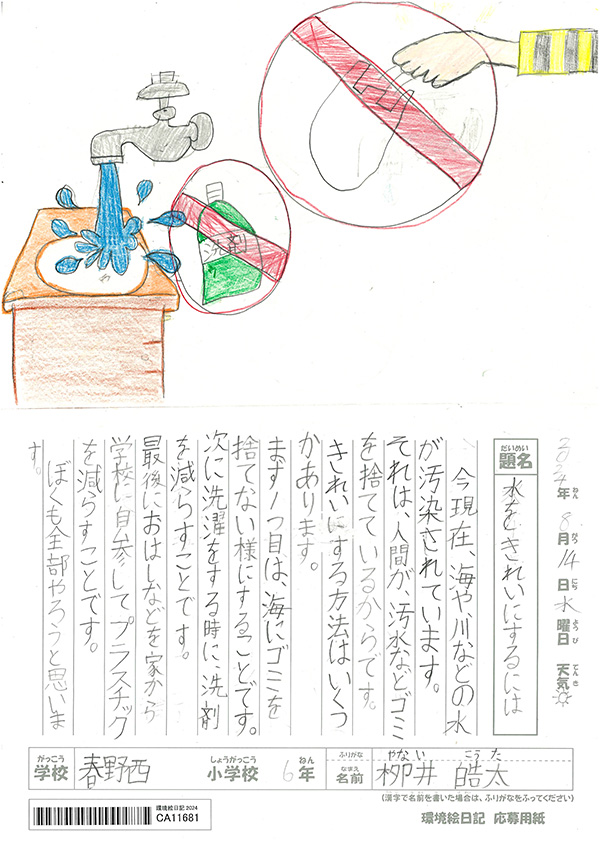 洗剤
2024年8月14日水曜日 天気
ねん がつ にち ようび てんき
だいめい
題名
水をきれいにするには
今現在、海や川などの水
が汚染されています。
それは、人間が、汚水などゴミ
を捨てているからです。
きれいにする方法はいくつ
かあります。
まず1つ目は、海にゴミを
捨てない様にすることです。
次に洗濯をする時に、洗剤
を減らすことです。
最後におはしなどを家から
学校に自参してプラスチック
を減らすことです。
ぼくも全部やろうと思いま
す。
がっこう しょうがっこう ねん
学校 春野西 小学校 6年
ふりがな やない こうた
なまえ
名前 栁井 皓太
(漢字で名前を書いた場合は、ふりがなをふってください)
環境絵日記 2024
CA11681
環境絵日記 応募用紙